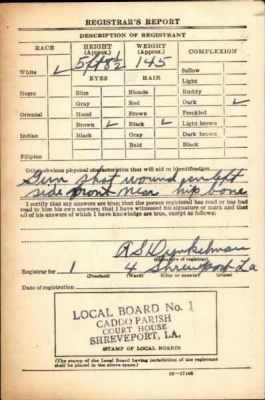 REGISTRAR'S REPORT
DESCRIPTION OF REGISTRANT
RACE HEIGHT (Approx.) WEIGHT (Approx.) COMPLEXION
White ✓ 5 ft 8½ 145 Sallow
EYES HAIR Light
Negro Blue Blonde Ruddy
Gray Red Dark ✓
Oriental Hazel Brown Freckled
Brown ✓ Black ✓ Light brown
Indian Black Gray Dark brown
Bald Black
Filipino
Other obvious physical characteristics that will aid in identification
Gun shot wound on left
side front near hip bone
I certify that my answers are true; that the person registered has read or has had
read to him his own answers; that I have witnessed his signature or mark and that
all of his answers of which I have knowledge are true, except as follows:
R S Dunkelman
(Signature of registrar)
Registrar for 1 4 Shreveport La
(Precinct) (Ward) (City or county) (State)
Date of registration
LOCAL BOARD No. 1
CADDO PARISH
COURT HOUSE
SHREVEPORT, LA.
(STAMP OF LOCAL BOARD)
(The stamp of the Local Board having jurisdiction of the registrant
shall be placed in the above space.)